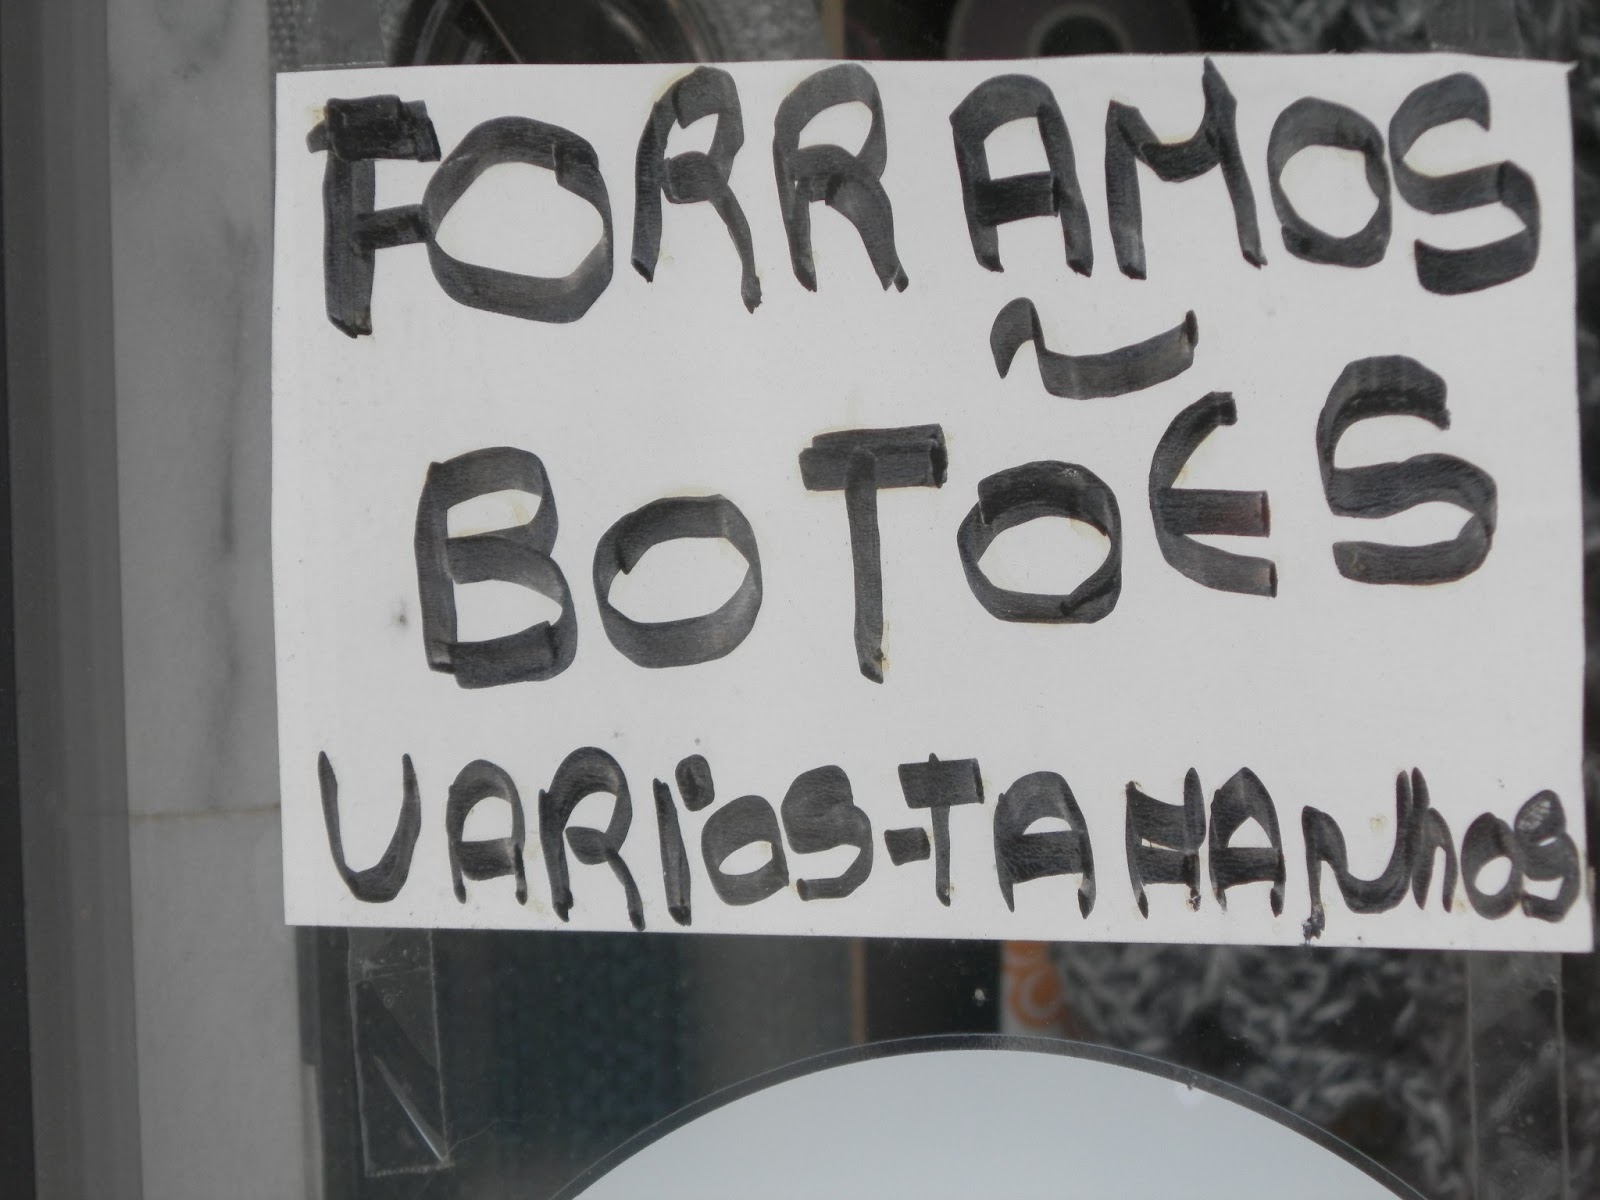 FORRAMOS
BOTÕES
VARIOS-TAMANhOS